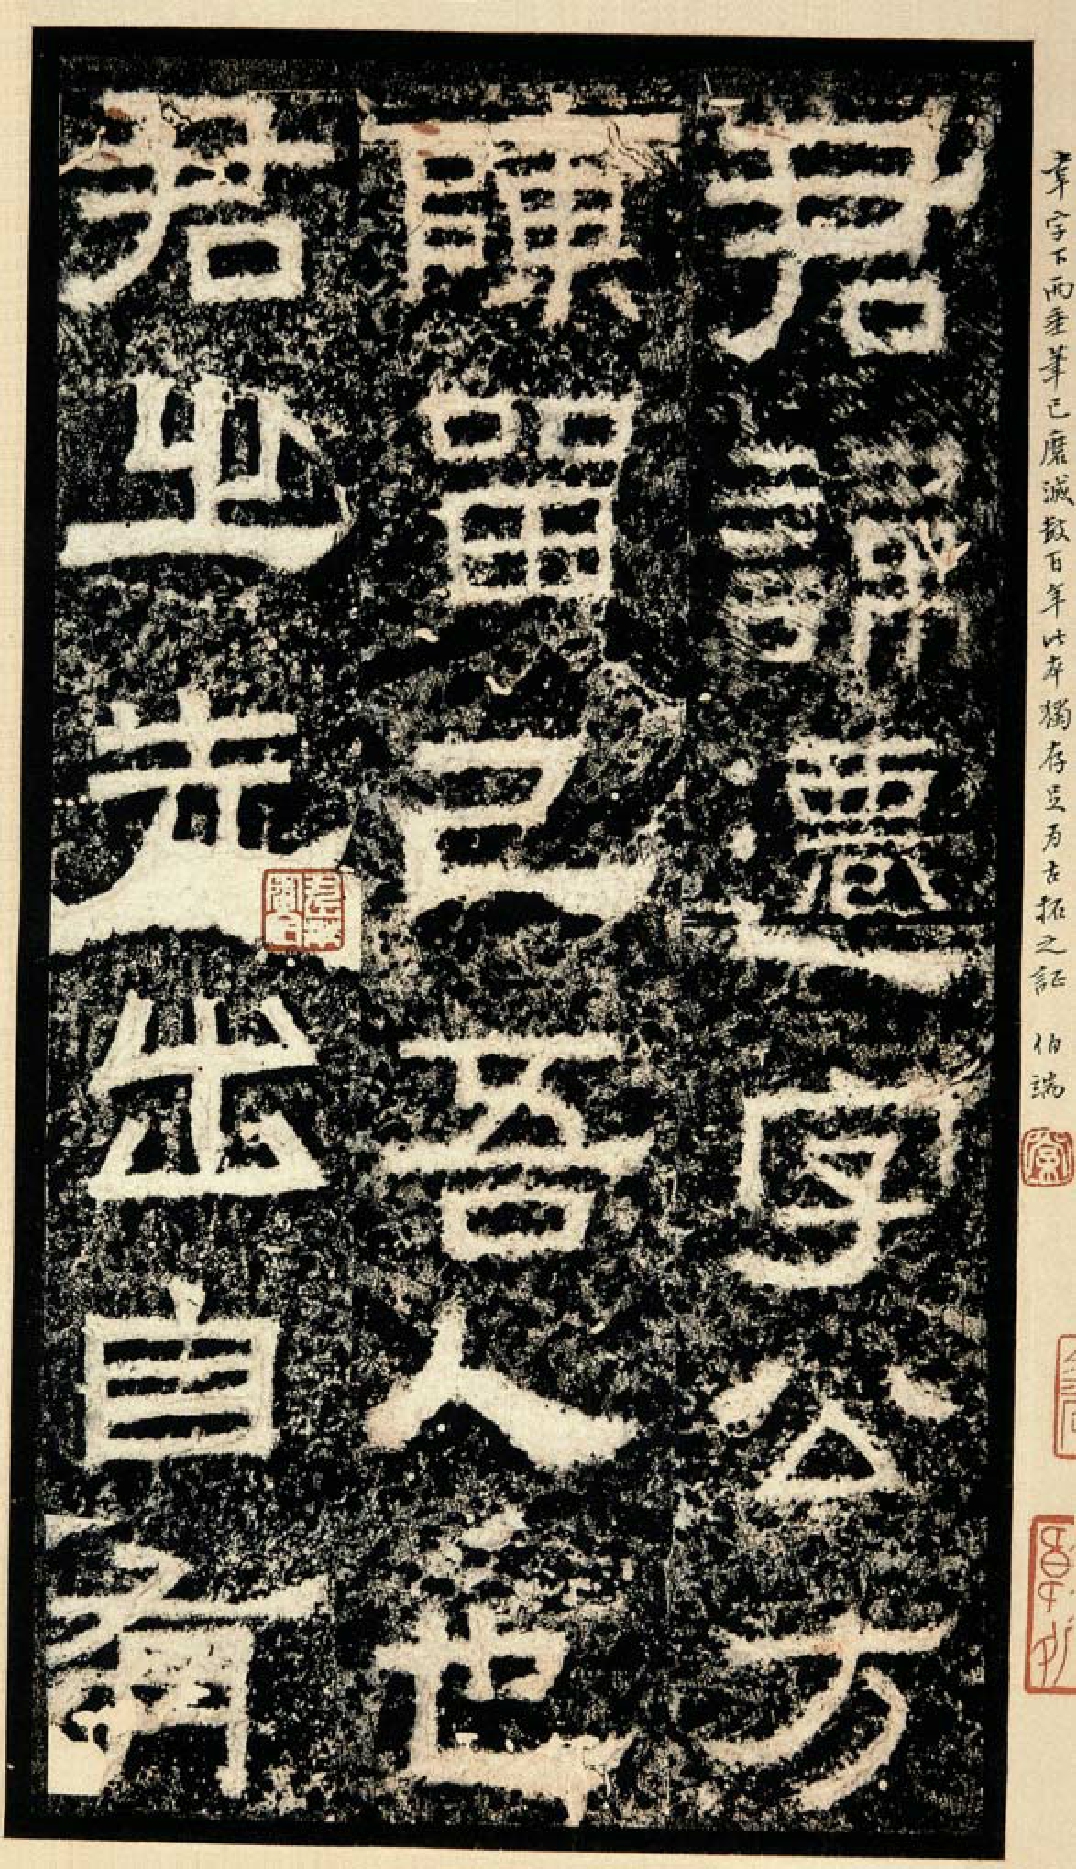 韋字下两垂筆已磨滅數百年此本獨存足为古拓之証 伯端
君諱遷字公方
陳留己吾人也
君之先出自有